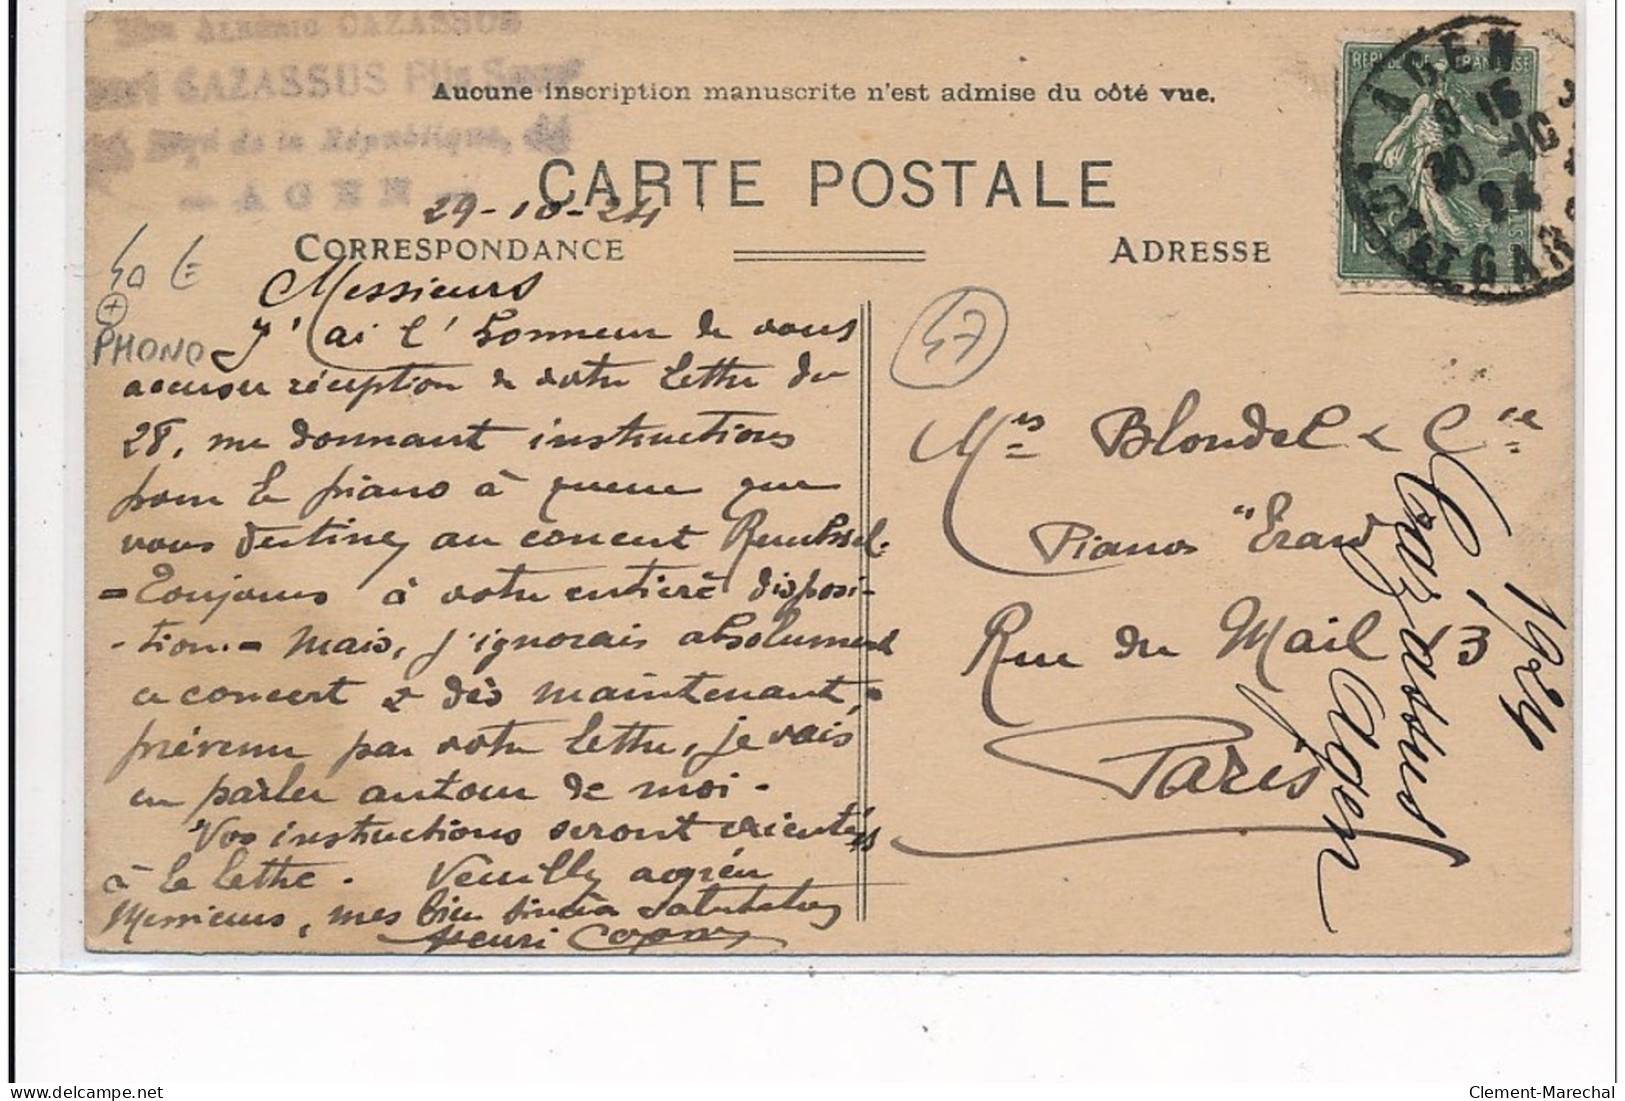 Alberic CAZASSUS
CAZASSUS Fils
Bard de la République, 44
- AGEN -
Aucune inscription manuscrite n'est admise du côté vue.
CARTE POSTALE
29-10-24
CORRESPONDANCE
ADRESSE
REPUBLIQUE FRANÇAISE
AGEN
9 15
30 -10
24
LOT ET GAR
40 €
+
PHONO
47
Messieurs
J'ai l'honneur de vous
accuser réception de votre lettre du
28, me donnant instructions
pour le piano à queue que
vous destinez au concert
= Toujours à votre entière disposi-
-tion.= Mais, j'ignorais absolument
ce concert & dès maintenant,
prévenu par votre lettre, je vais
en parler autour de moi.
Vos instructions seront exécutées
à la lettre. Veuillez agréer
Messieurs, mes bien sincères salutations
Henri
Mrs Blondel & Cie
Pianos "Erard
Rue du Mail 13
Paris
Cazassus
Agen
1924
Clement-Marechal